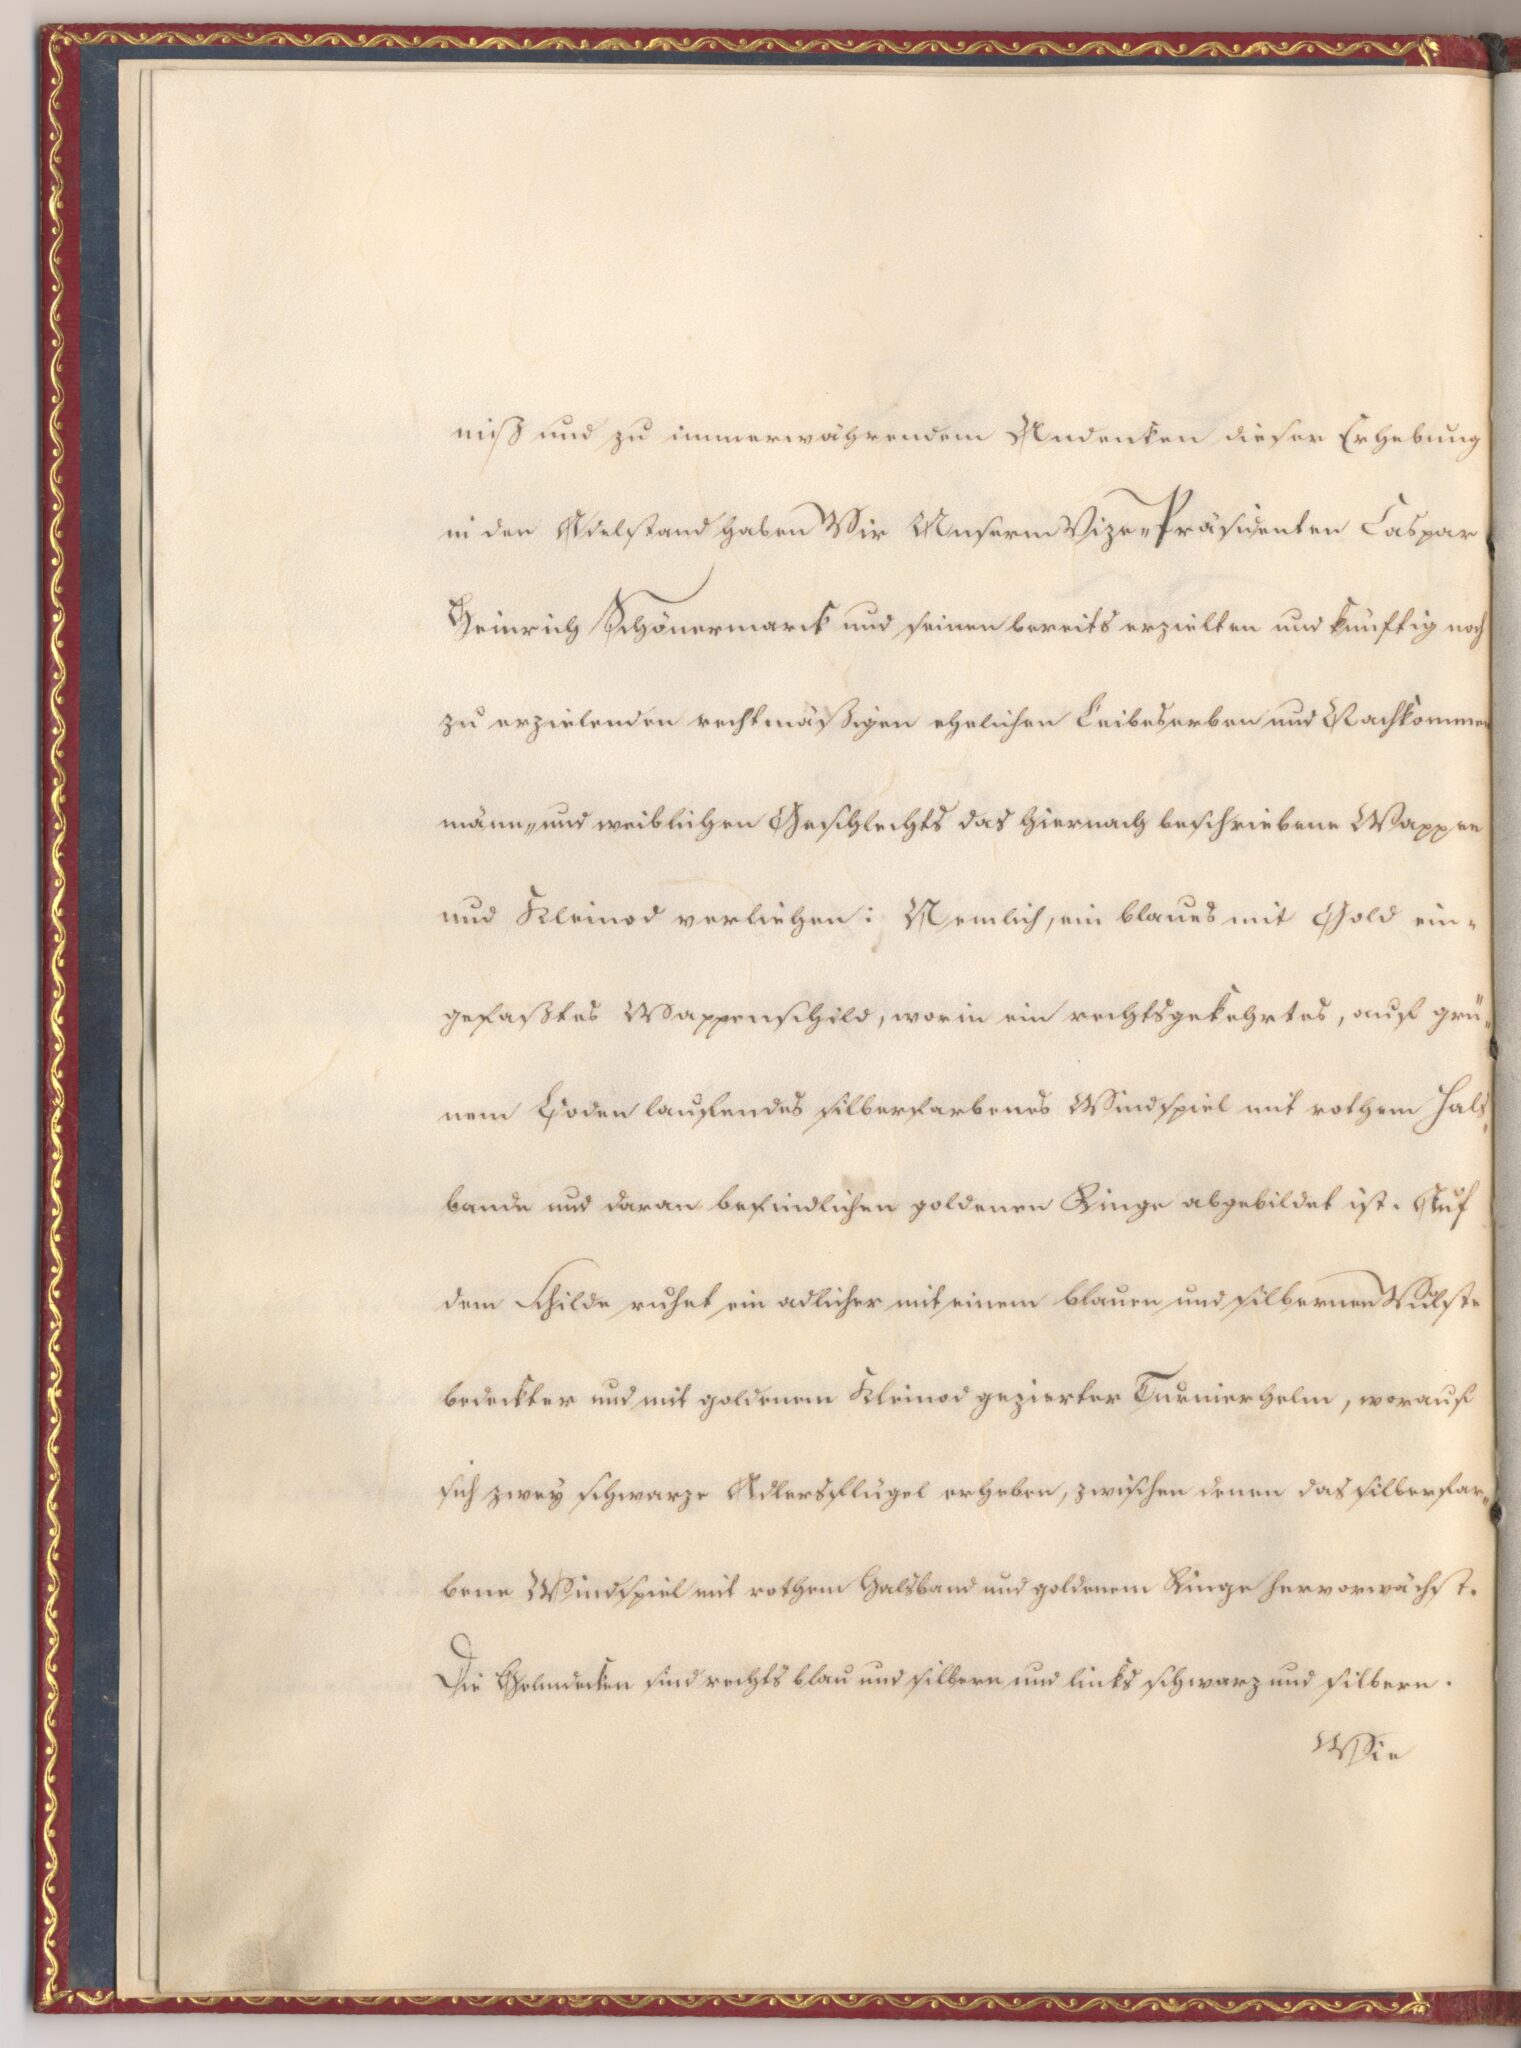 niß und zu immerwährendem Andenken dieser Erhebung
in den Adelstand haben Wir Unserm Vize-Präsidenten Caspar
Heinrich Schönermarck und seinen bereits erzielten und künftig noch
zu erzielenden rechtmäßigen ehelichen Leibeserben und Nachkommen
männ- und weiblichen Geschlechts das hiernach beschriebene Wappen
und Kleinod verliehen: Nemlich, ein blaues mit Gold ein-
gefaßtes Wappenschild, worin ein rechtsgekehrtes, auf grü-
nem Boden laufendes silberfarbenes Windspiel mit rothem Hals-
bande und daran befindlichen goldenen Ringe abgebildet ist. Auf
dem Schilde ruhet ein adlicher mit einem blauen und silbernen Wulste
bedeckter und mit goldenem Kleinod gezierter Turnierhelm, worauf
sich zwey schwarze Adlersflügel erheben, zwischen denen das silberfar-
bene Windspiel mit rothem Halsband und goldenem Ringe hervorwächst.
Die Helmdecken sind rechts blau und silbern und links schwarz und silbern.
Wie